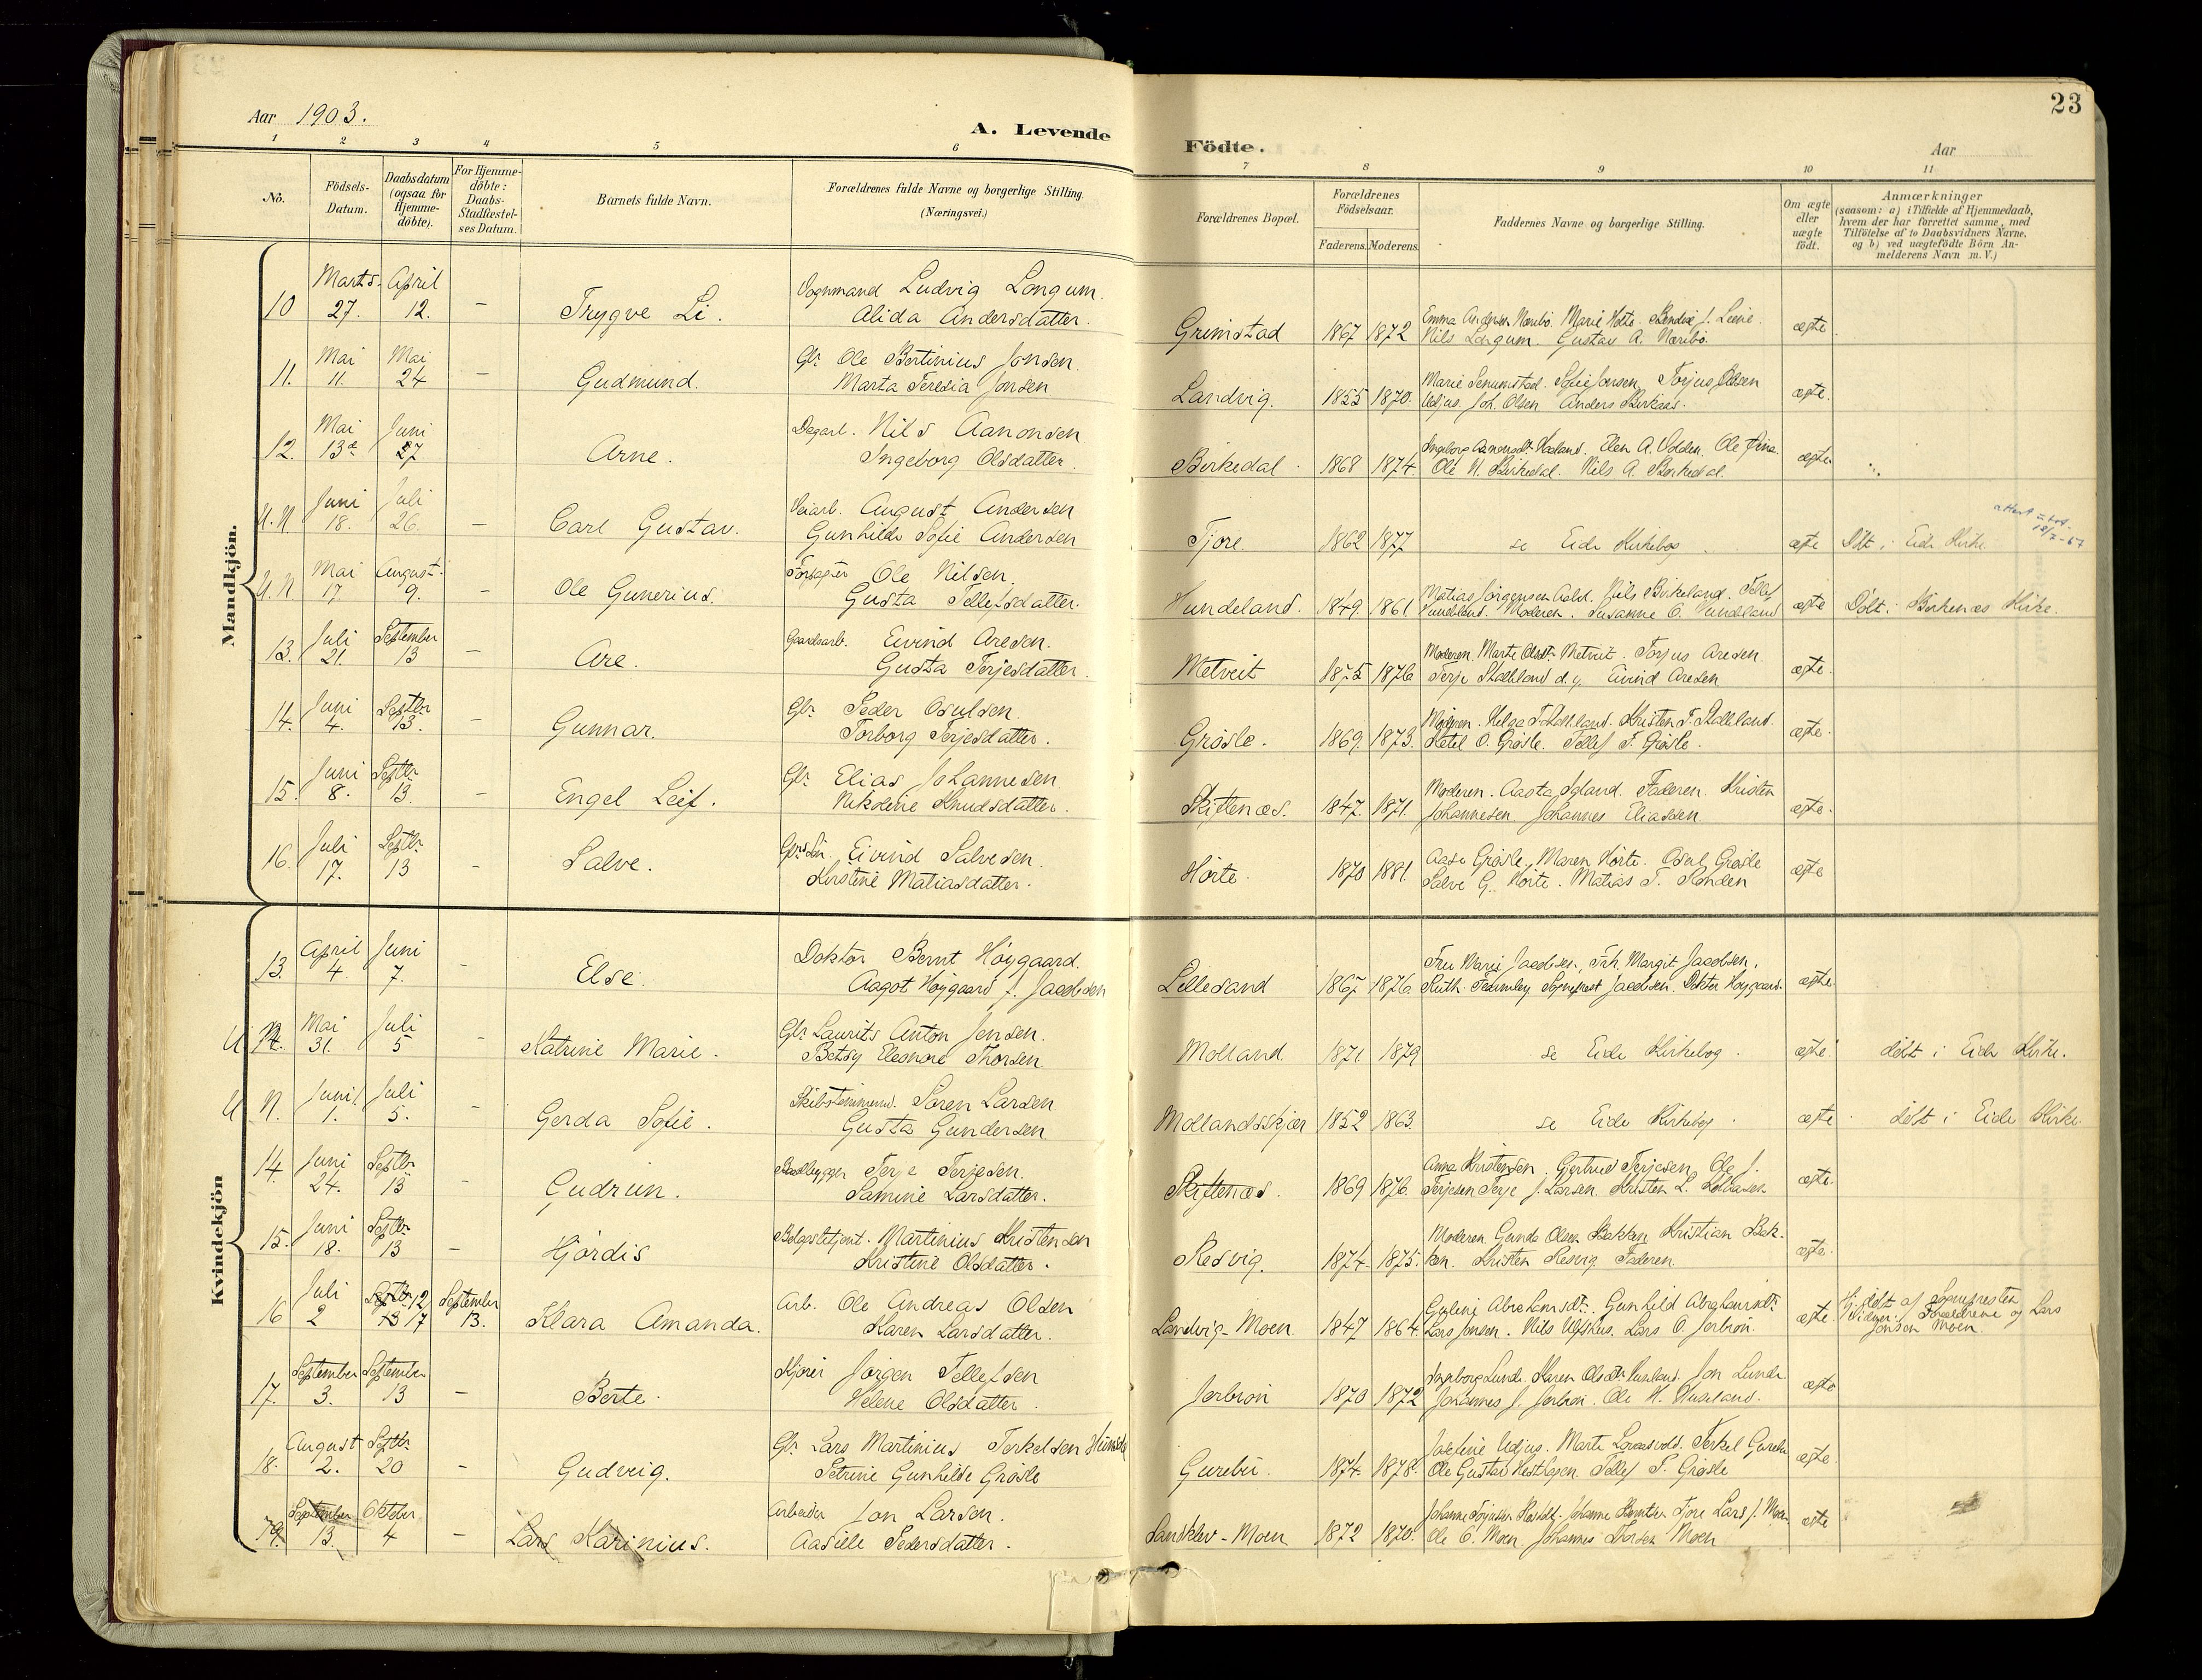 23
Aar 1903.
A. Levende
Födte.
Aar
1 2 3 4 5 6 7 8 9 10 11
No.
Födsels-Datum.
Daabsdatum (ogsaa for Hjemme-döbte).
For Hjemme-döbte: Daabs-Stadfæstel-ses Datum.
Barnets fulde Navn.
Forældrenes fulde Navne og borgerlige Stilling. (Næringsvei.)
Forældrenes Bopæl.
Forældrenes Födselsaar.
Faderens. Moderens.
Faddernes Navne og borgerlige Stilling.
Om ægte eller uægte födt.
Anmærkninger
(saasom: a) i Tilfælde af Hjemmedaab, hvem der har forrettet samme, med Tilföielse af to Daabsvidners Navne, og b) ved uægtefödte Börn An-melderens Navn m. V.)
Mandkjön.
10 Marts 27. April 12. – Trygve Li. Vognmand Ludvig Longum. Alida Andersdatter. Grimstad 1867 1872 Nils Longum. Gustav A. ægte
11. Mai 11. Mai 24 – Gudmund. Gbr. Ole Bertinius Jonsen. Marta Teresia Jonsen Landvig. 1855 1870. Sofie Jonsen. Torjus Olsen Udjus. Joh. Olsen Anders Birkaas. ægte.
12. Mai 13de Juni 27 Arne. Dagarb. Nils Aanonsen Ingeborg Olsdatter. Birkedal. 1868 1874. Ole N. Birkedal. Nils A. Birkedal. ægte
U.N. Juni 18. Juli 26. – Carl Gustav. Veiarb. August Andersen Gunhilde Sofie Andersen Tjore. 1862 1877 se Eide Kirkebog ægte Döbt i Eide Kirke.
U.N. Mai 17. August 9. – Ole Gunerius. Ole Nilsen. Gusta Tellefsdatter. Hundeland. 1849. 1861. Matias Jörgensen Nils Birkeland. Tellef Moderen. Susanne O. ægte Döbt i Birkenes Kirke.
13. Juli 21. September 13 – Are. Gaardsarb. Eivind Aresen. Gusta Terjesdatter. Metveit 1875 1876 Moderen. Marte Olsdt. Metveit. Torjus Aresen. Terje Stalleland d.y. Eivind Aresen ægte.
14. Juni 4. Septbr 13. – Gunnar. Gbr. Peder Osulsen. Torborg Terjesdatter. Grösle. 1869. 1873. Moderen. Helga Kristen T. Stalleland. Ketel O. Grösle. Tellef T. Grösle. ægte.
15. Juni 8. Septbr 13. – Engel Leif. Gbr. Elias Johannesen Nikoline Knudsdatter. Skiftenes. 1847. 1871. Moderen. Aasta Igland. Faderen. Kristen Johannesen Johannes Eliassen. ægte.
16. Juli 17. Septbr. 13 – Salve. Eivind Salvesen. Kirstine Matiasdatter. Hörte. 1870 1881. Aase Grösle. Maren Hörte. Osul Grösle Salve G. Hörte. Matias T. ægte
Kvindekjön
13. April 4. Juni 7. – Else. Doktor Bernt Höygaard. Aagot Höygaard f. Jacobsen Lillesand 1867 1876. Fru Marie Jacobsen, Frk. Margit Jacobsen. Ruth Jacobsen. Doktor Höygaard. ægte.
U N. Mai 31. Juli 5 – Katrine Marie. Gbr Laurits Anton Jensen. Betsy Eleonore Thorsen Molland. 1871 1879 se Eide Kirkebog. ægte döbt i Eide Kirke.
U N. Juni 1. Juli 5. – Gerda Sofie. Skibstømmerm. Sören Larsen. Gusta Gundersen Mollandsskjær 1852 1863. se Eide Kirkebog. ægte döbt i Eide Kirke.
14. Juni 24. Septbr 13 – Gudrun. Terje Terjesen. Samine Larsdatter. Skiftenes. 1869 1876. Anna Kristensen. Gertrud Terjesen, Ole J. Terjesen Terje J. Larsen. Kristen L. ægte.
15. Juni 18. Septbr 13 – Hjördis Martinius Kristensen Kristine Olsdatter. Resvig. 1874. 1875. Moderen. Gunda Olsen Bakken Kristian Bak-ken. Kristen Resvig. Faderen. ægte.
16 Juli 2 Septbr 12 13 17 September 13. Klara Amanda. Arb. Ole Andreas Olsen Karen Larsdatter. Landvig-Moen. 1847 1864. Abrahamsdt. Gunhild Abrahamsdt. Lars Jonsen. Nils Lars O. Jorbron. ægte. Hj. döbt af Sognepresten Vidner: Forældrene og Lars Jonsen Moen.
17. September 3. September 13 – Berte. Jörgen Tellefsen Helene Olsdatter. Jorbron 1870 1872 Ingeborg Lunde. Karen Olsdt. Jon Lunde Johannes J. Jorbron. Ole H. ægte
18. August 2. Septbr 20 – Gudveig. Gbr. Lars Martinius Terkelsen Petrine Gunhilde Grösle Gurebu. 1874. 1878. Josefine Udjus. Marte Terkel Gurebu Ole Gustav Hesthagen. Tellef P. Grösle ægte.
19. September 13. Oktober 4 – Lars Karinius. Arbeider Jon Larsen. Aasille Pedersdatter. Landvig-Moen 1872 1870. Johanne Tjore Lars J. Moen Ole O. Moen. Johannes Moen ægte